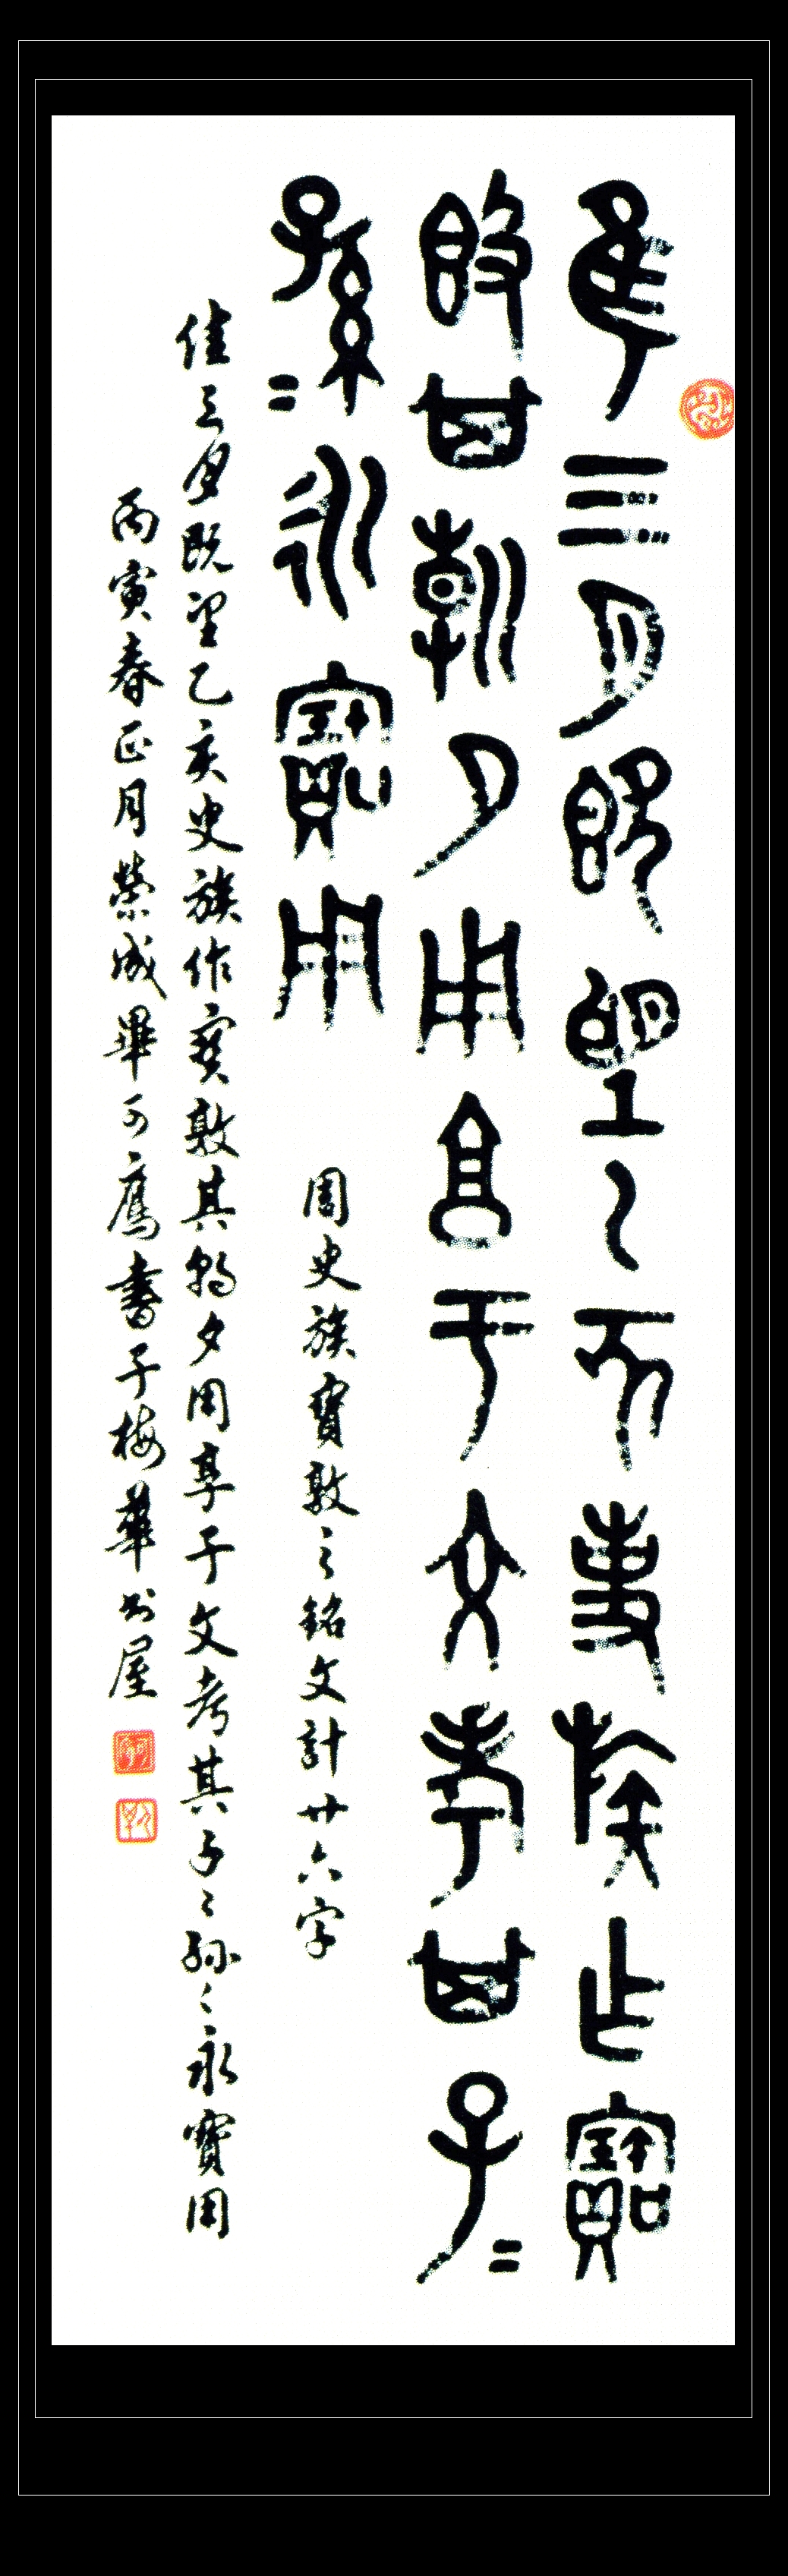 隹三月既望乙亥事族乍寶
𣪘其朝夕用享于文考其子=
孫=永寶用
周史族寶敦之銘文計廿六字
佳三月既望乙亥史族作寶敦其朝夕用享于文考其子〻孫〻永寶用
丙寅春正月榮成畢可鷹書于梅華書屋